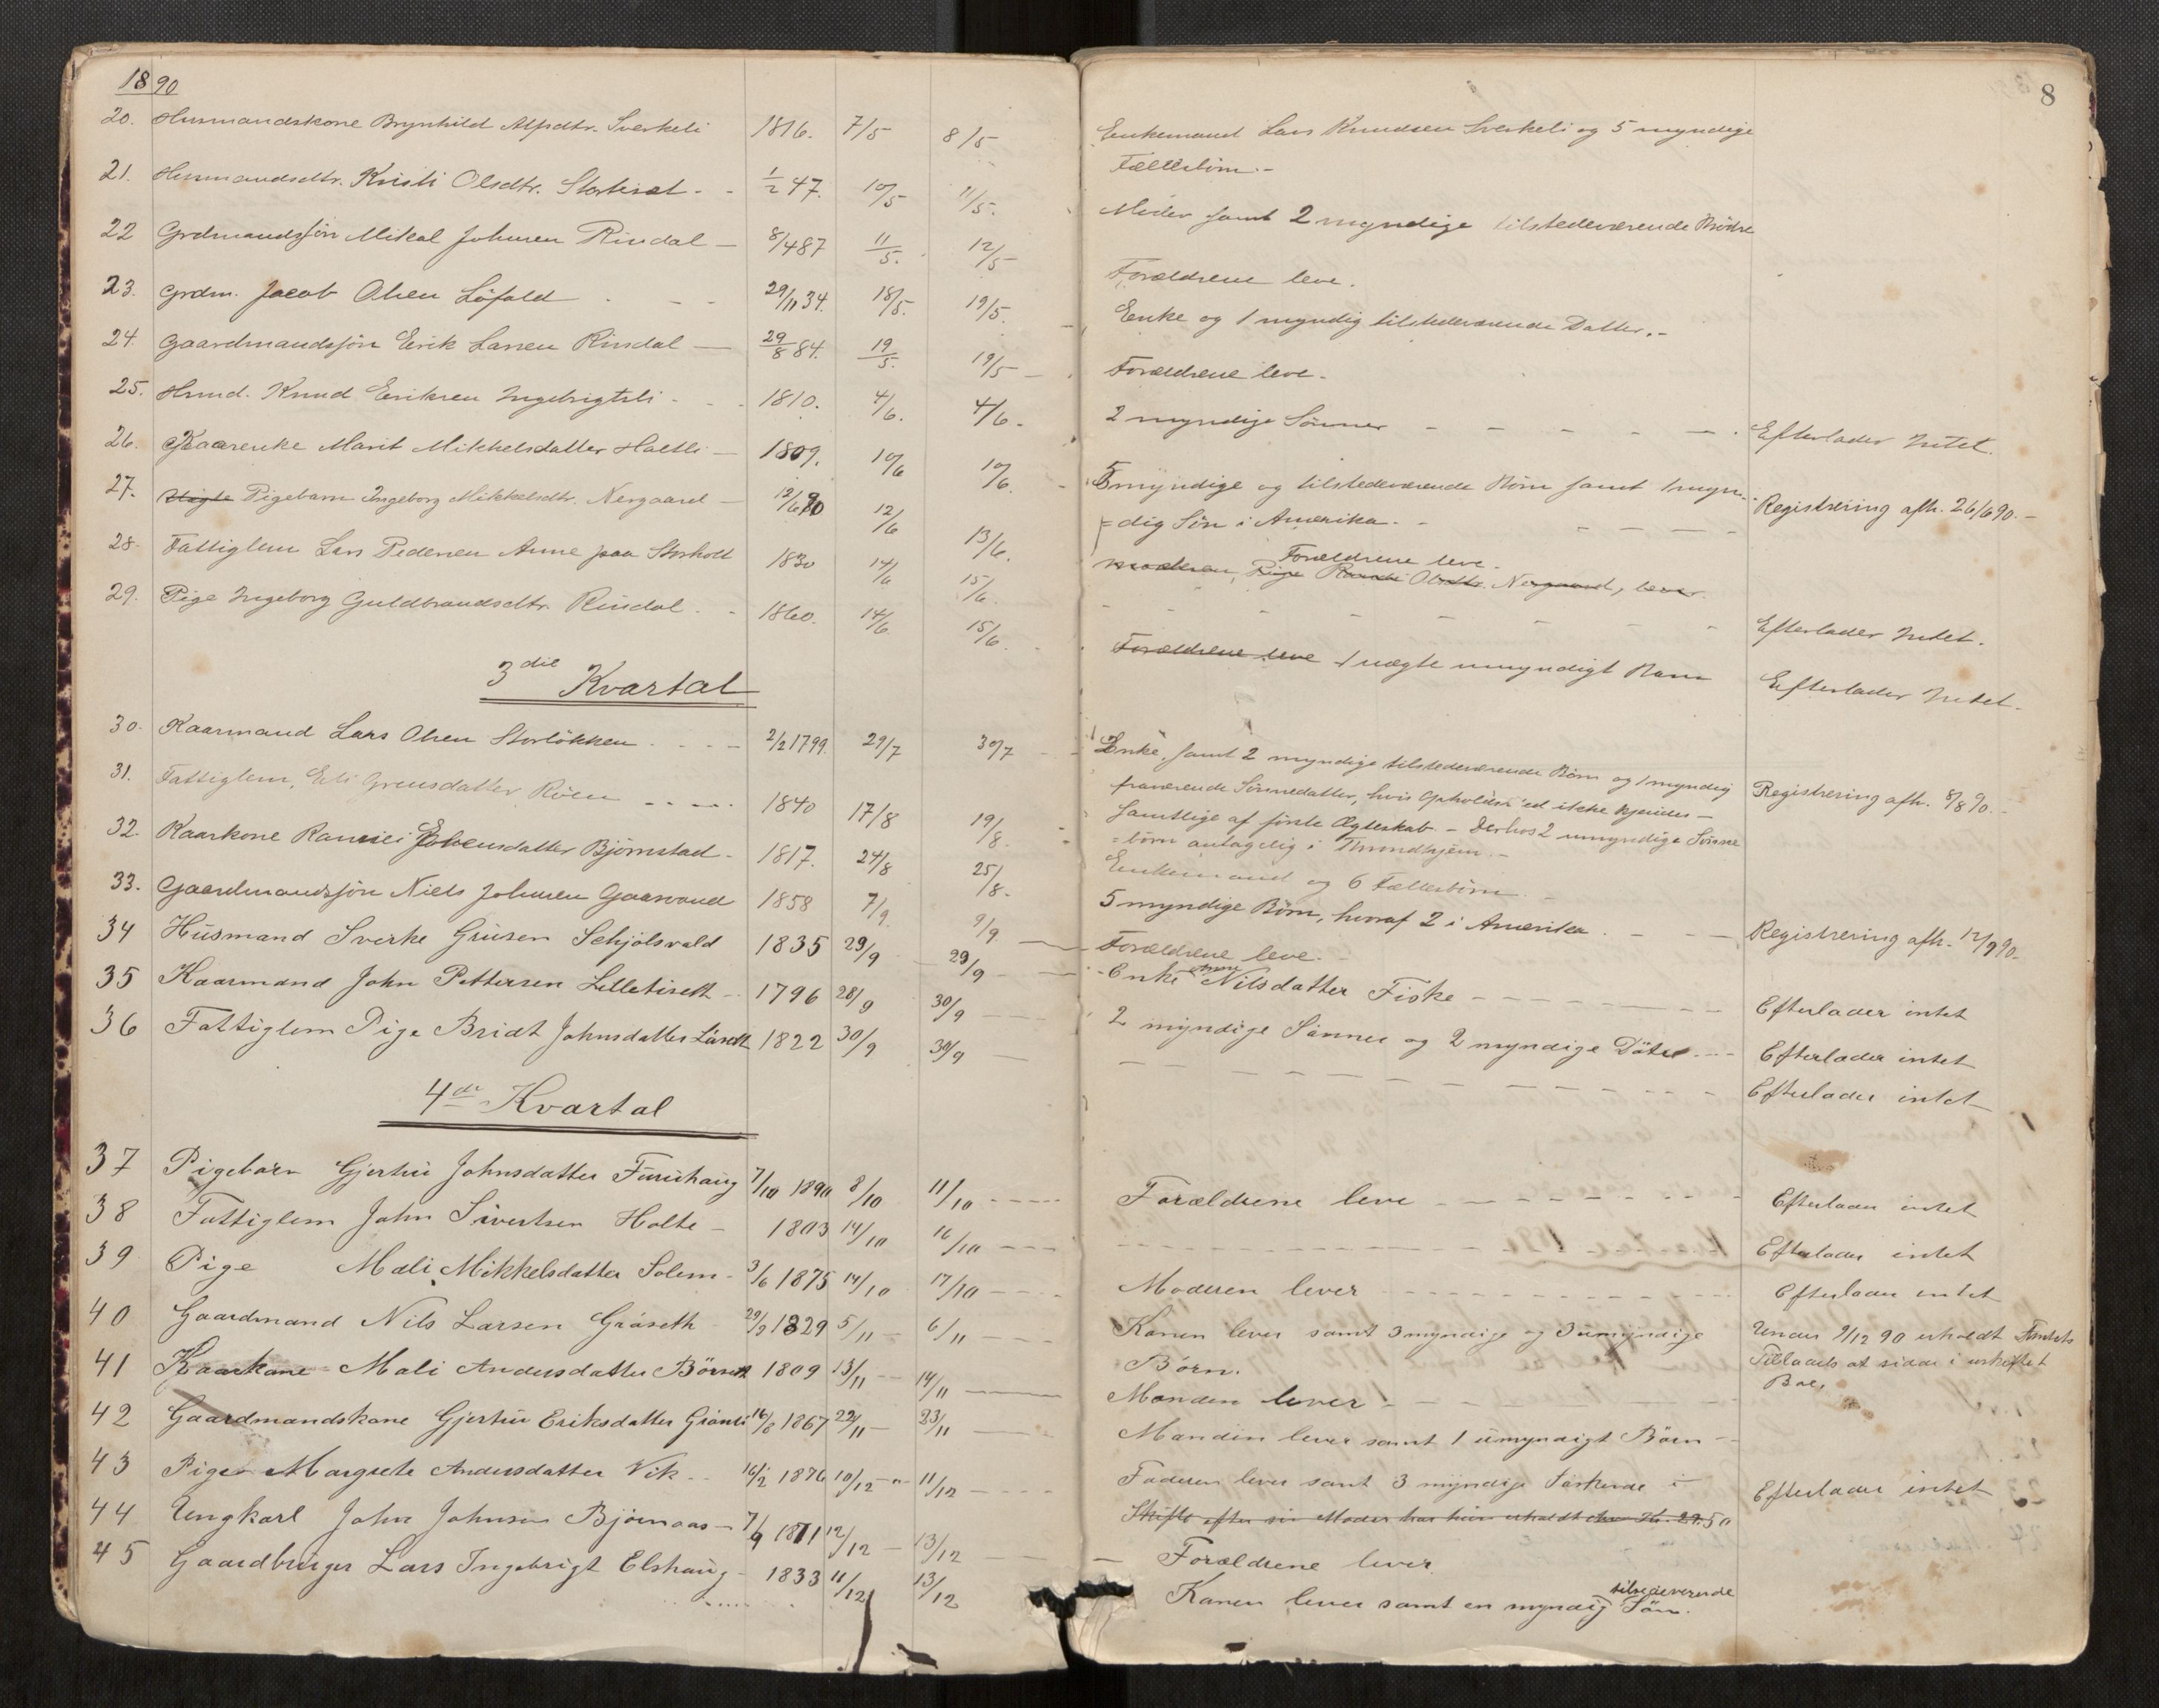 1890
20. Husmandskone Brynhild Alfsdtr. Sverkeli 1816. 7/5 8/5
21. Husmandsdtr. Kristi Olsdtr. Stortiset - - 1/2 47. 10/5 11/5.
22 Grdmandssön Mikal Johnsen Rindal — 8/4 87 11/5. 12/5
23. Grdm. Jacob Olsen Löfald - - - 29/11 34. 18/5. 19/5.
24. Gaardmandssön Erik Larsen Rindal — 29/8 84. 19/5. 19/5
25. Husmd. Knud Eriksen Ingebrigtsli - - - 1810. 4/6. 4/6.
26. Kaarenke Marit Mikkelsdatter Haltli — 1809. 10/6 10/6.
27. Pigebarn Ingeborg Mikkelsdtr. Nergaard — 12/6 90 12/6 13/6.
28. Fattiglem Lars Pedersen Aune paa Storholt 1830 14/6 15/6.
29. Pige Ingeborg Guldbrandsdtr. Rindal - - 1860. 14/6 15/6.
3die Kvartal
30. Kaarmand Lars Olsen Storlökken - - - - 2/2 1799. 29/7 30/7
31. Fattiglem, Eli Grensdatter Röen - - - - 1840 17/8 19/8.
32. Kaarkone Bjørnstad - 1817. 24/8 25/8.
33. Gaardmandssön Niels Johnsen Gaasvand 1858 7/9. 9/9
34 Husmand Sverke Grusen Schjölsvold 1835 29/9 29/9
35 Kaarmand John Pettersen Lilletiseth - 1796 28/9 30/9
36 Fattiglem Pige Bridt Johnsdatter Løseth 1822 30/9 30/9
4de Kvartal
37 Pigebarn Gjertru Johnsdatter Furuhaug 7/10 1890 8/10 11/10 - - - -
38 Fattiglem John Sivertsen Holte - 1803 14/10 16/10 - - -
39 Pige Mali Mikkelsdatter Solem - 3/6 1875 14/10 17/10 - - -
40 Gaardmand Nils Larsen Gråseth 29/9 1829 5/11 - 6/11 - - -
41 Kaarkone Mali Andersdatter Börseth 1809 13/11 - 14/11 —
42 Gaardmandskone Gjertru Eriksdatter 16/8 1867 22/11 - 23/11
43 Pige Margrete Andersdatter Vik - - 16/2 1876 10/12 - 11/12 - - -
44 Ungkarl John Johnsen Bjørnaas - 7/9 1871 12/12 - 13/12
45 Gaardbruger Lars Ingebrigt Elshaug - 1833 11/12 13/12
8
Enkemand Lars Knudsen Sverkeli og 5 myndige
Fællesbörn. -
Moder samt 2 myndige tilstedeværende Brödre
Forældrene leve.
Enke og 1 myndig tilstedeværende Datter. -
Forældrene leve.
2 myndige Sönner - - - - - Efterlader Intet.
5 myndige og tilstedeværende Börn samt 1 myn-
=dig Sön i Amerika. - - - - Registrering afh. 26/6 90. -
Forældrene leve.
Moderen, Pige Randi Olsdtr. Nergaard, lever.
- - - - - - - Efterlader Intet.
Forældrene leve 1 uægte umyndigt Barn Efterlader Intet.
Enke, samt 2 myndige tilstedeværende Börn og 1 myndig
fraværende Sönnedatter, hvis Opholdssted ikke kjendes - Registrering afh. 8/8 90. -
Samtlige af förste Ægteskab. - Derhos 2 umyndige Sönne
=börn antagelig i Throndhjem. -
Enkemand og 6 Fællesbörn. -
5 myndige Börn, hvoraf 2 i Amerika. - - - Registrering afh. 12/9 90.
Forældrene leve. -
Enke Nilsdatter Fiske - - - - - - Efterlader intet
2 myndige Sönner og 2 myndige Dötre - - - Efterlader intet
- - - - - - - Efterlader intet
Forældrene leve - - - - - - - Efterlader intet
- - - - - - - Efterlader intet
Moderen lever - - - - - - - Efterlader intet
Konen lever samt 3 myndige og 3 umyndige Under 9/12 90 erholdt Amtets
Börn. Tilladelse at sidde i uskiftet
Bo.
Manden lever - - - - - - -
Manden lever samt 1 umyndigt Börn - -
Faderen lever samt 3 myndige Söskende i Efterlader intet
Skifte efter sin Moder har hun erholdt Kr. 29.50
— Forældrene lever
tilstedeverende
Konen lever samt en myndig Sön.